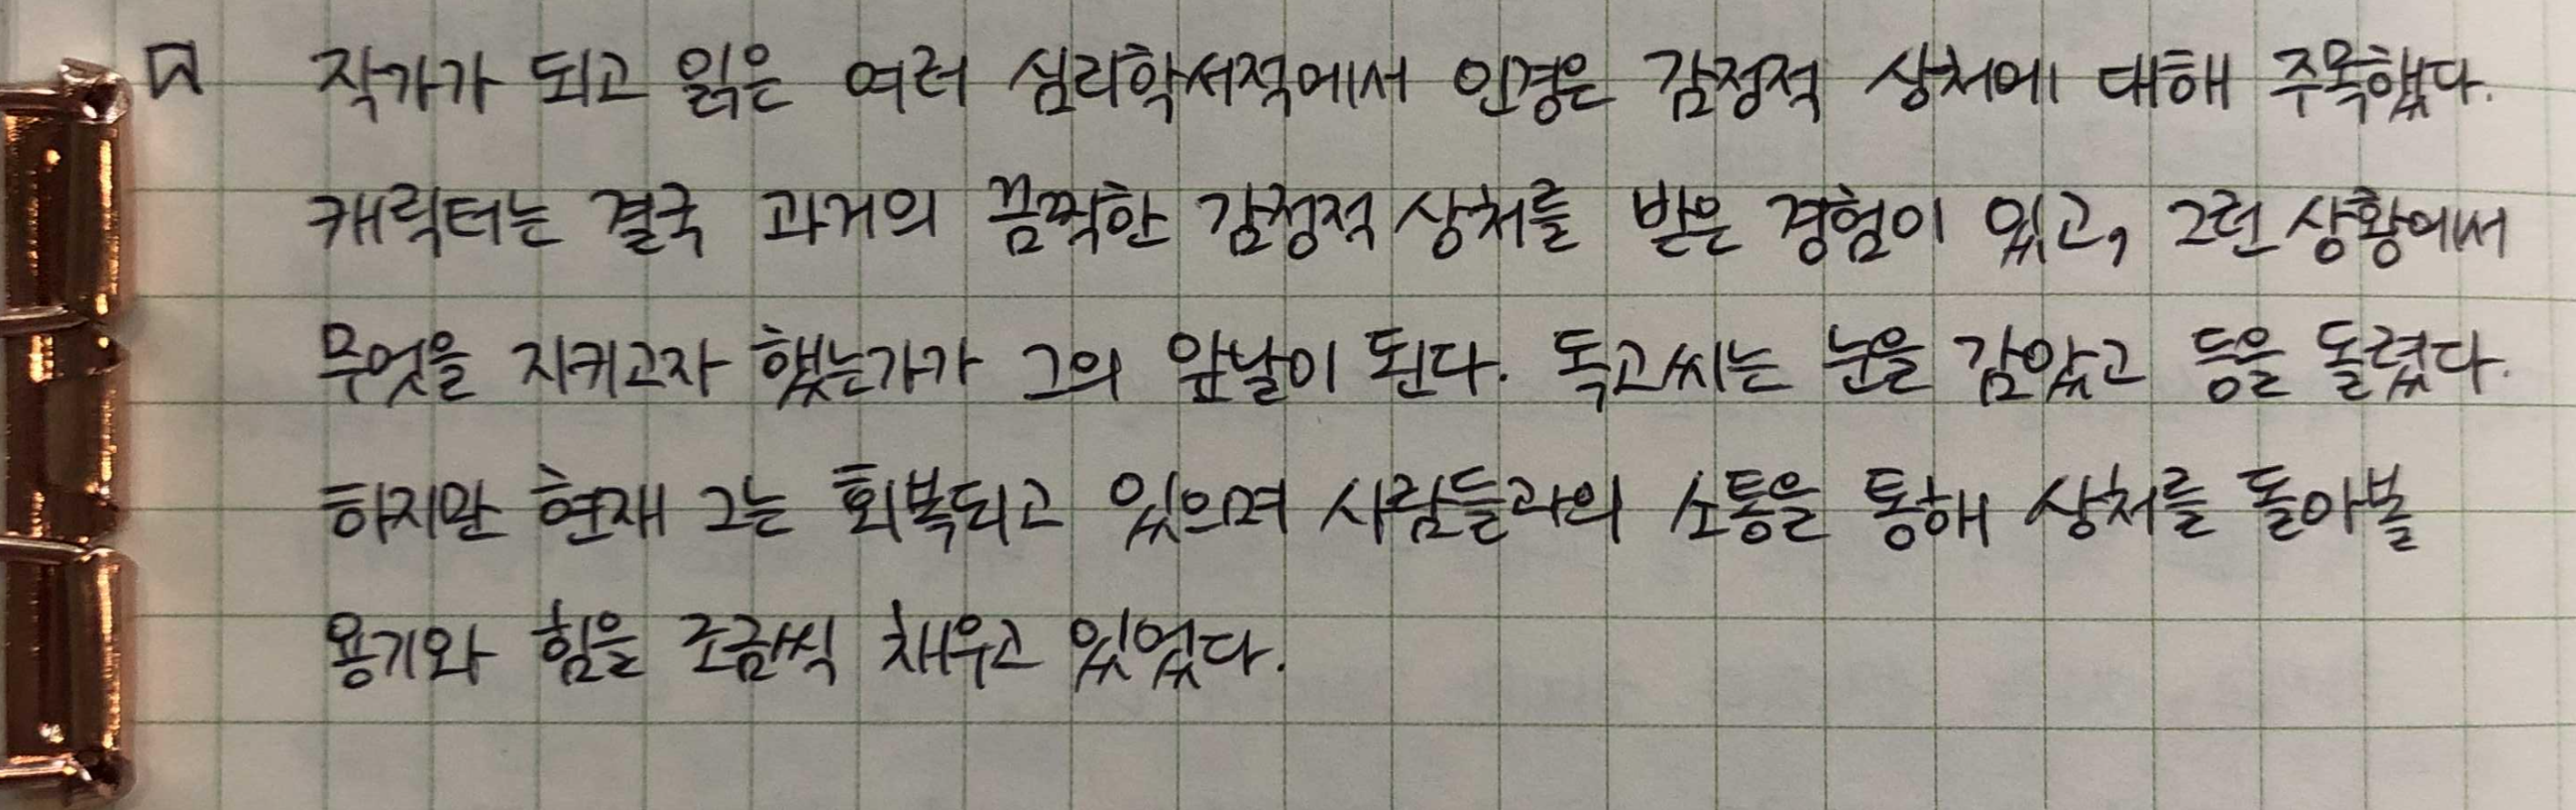 작가가 되고 읽은 여러 심리학서적에서 인경은 감정적 상처에 대해 주목했다.
캐릭터는 결국 과거의 끔찍한 감정적 상처를 받은 경험이 있고, 그런 상황에서
무엇을 지키고자 했는가가 그의 앞날이 된다. 독고씨는 눈을 감았고 등을 돌렸다.
하지만 현재 그는 회복되고 있으며 사람들과의 소통을 통해 상처를 돌아볼
용기와 힘을 조금씩 채우고 있었다.